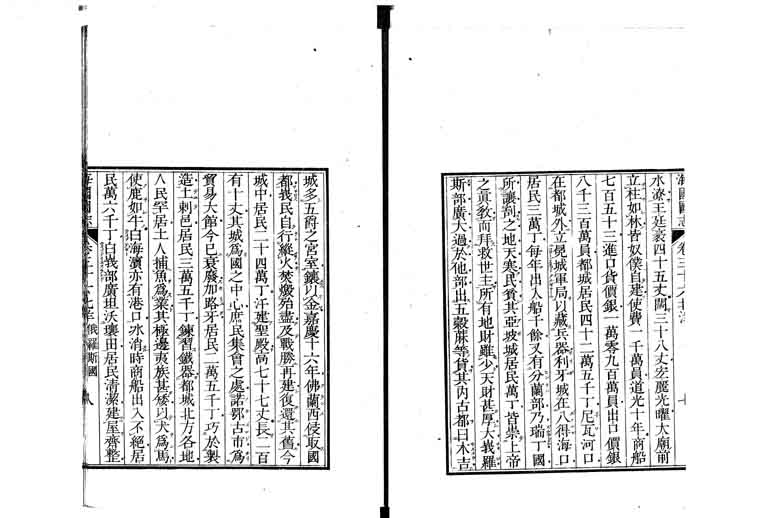 海國圖志
水遼王廷袤四十五丈闊三十八丈宏麗光曜大廟前
立柱如林皆奴僕自建使費一千萬員道光十年商船
七百五十三進口貨價銀一萬零九百萬員出口價銀
八千三百萬員都城居民四十二萬五千丁尼瓦河口
在都城外立堍城軍局以藏兵器利牙城在八得海口
居民三萬丁每年出入船千餘又有分蘭部乃瑞丁國
所讓割之地天寒民貧其亞坡城居民萬丁皆崇上帝
之眞敎而拜救世主所有地財雖少天財甚厚大峩羅
斯部廣大過於他部出五穀蔴等貨其內古都曰木吉
城多五爵之宮室鑲以金嘉慶十六年佛蘭西侵取國
都峩民自行縱火焚燬殆盡及戰勝再建復還其舊今
城中居民二十四萬丁汗建聖殿高七十七丈長二百
有十丈其城爲國之中心庶民集會之處諾鄂古市爲
貿易大館今已衰廢加路牙居民二萬五千丁巧於製
造土剌邑居民三萬五千丁鍊習鐵器都城北方各地
人民罕居土人捕魚爲業其極邊夷族甚矮以犬爲馬
使鹿如牛白海濱亦有港口冰消時商船出入不絕居
民萬六千丁白峩部廣坦沃壤田居民淸潔建屋齊整
俄羅斯國